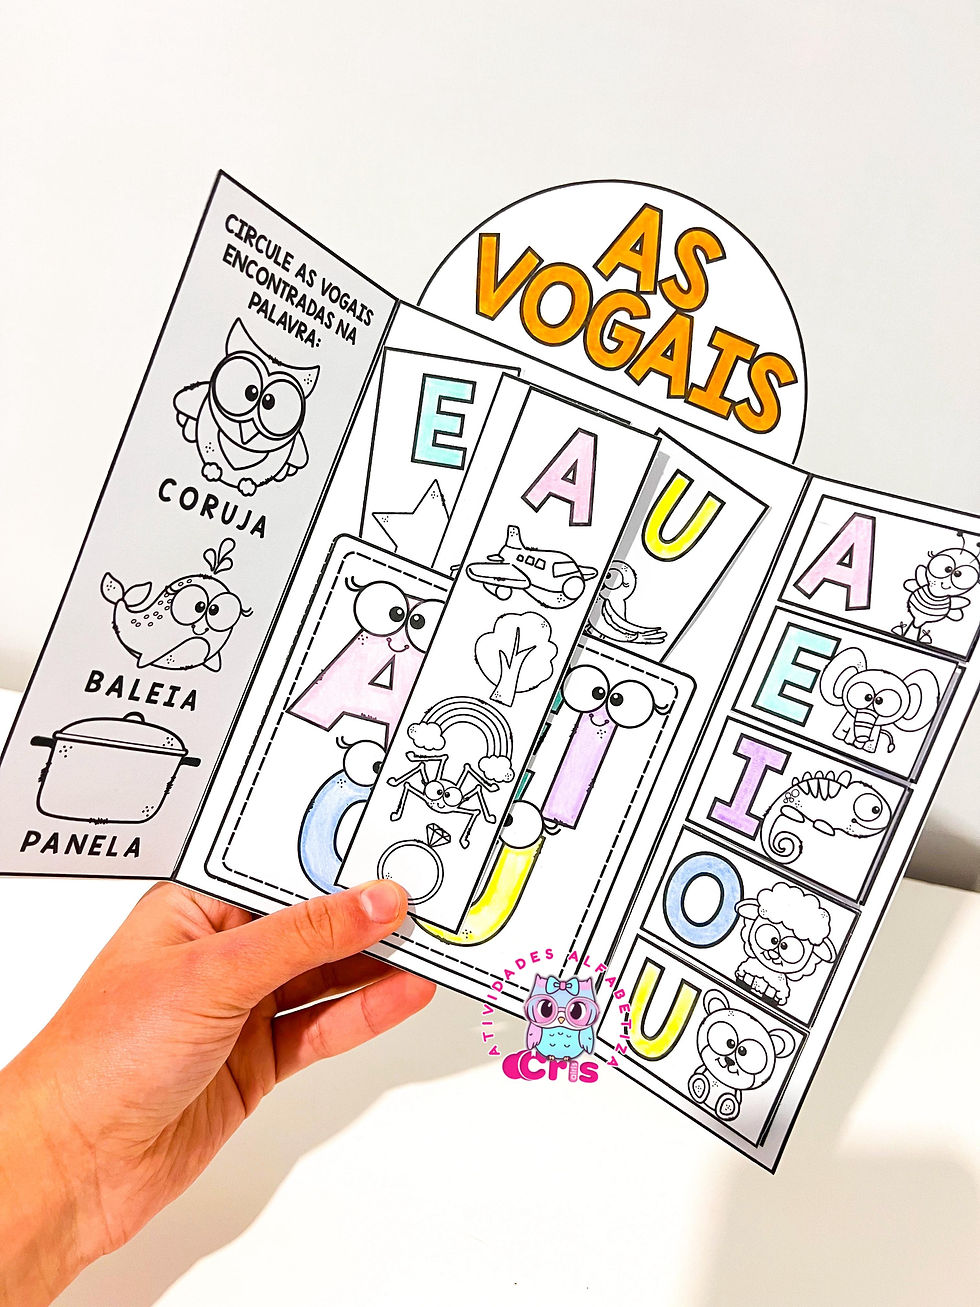 AS
VOGAIS
CIRCULE AS VOGAIS
ENCONTRADAS NA
PALAVRA:
CORUJA
BALEIA
PANELA
E
A
U
A
I
O
U
A
E
I
O
U
ATIVIDADES ALFABETIZA
Cris